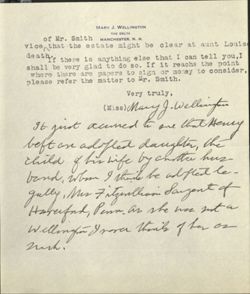 MARY J. WELLINGTON
THE DELTA
MANCHESTER, N. H.
of Mr. Smith
vice, that the estate might be clear at aunt Louise
death.
If there is anything else that I can tell you, I
shall be very glad to do so. If it reaches the point
where there are papers to sign or money to consider,
please refer the matter to Mr. Smith.
Very truly,
(Miss) Mary J. Wellington
It just occurred to me that Henry
left an adopted daughter, the
child of his wife by another hus-
band, whom I think he adopted le-
gally, Mrs Fitzwilliam Sargent of
Haverford, Penn. As she was not a
Wellington I never think of her as
such.